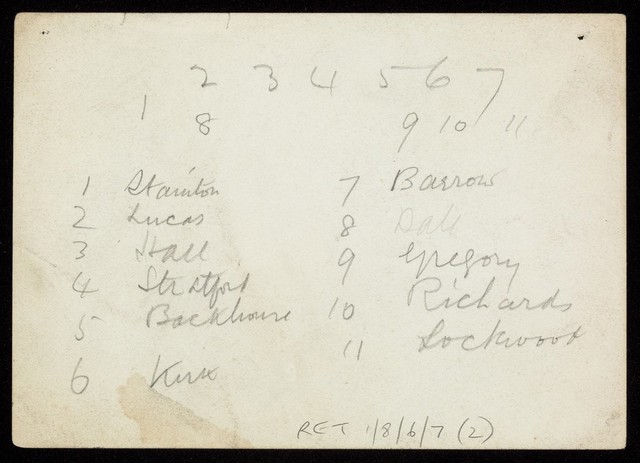 2 3 4 5 6 7
1 8 9 10 11
1 Stainton
2 Lucas
3 Hall
4 Stratford
5 Backhouse
6 Kirk
7 Barrow
8 Dall
9 Gregory
10 Richards
11 Lockwood
RET 1/8/6/7 (2)